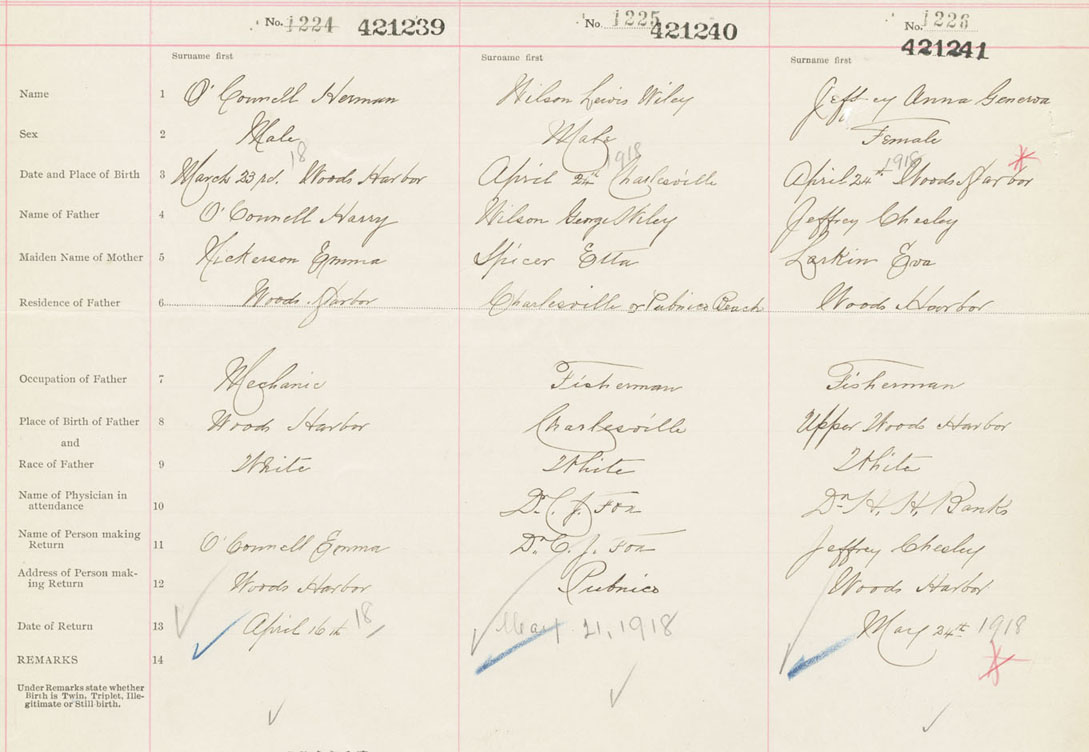 No. 1224 421239 No. 1225 421240 No. 1226 421241
Surname first Surname first Surname first
Name 1 O'Connell Herman Wilson Lewis Wiley Jeffrey Anna Geneva
Sex 2 Male Male Female
18 1918 1918
Date and Place of Birth 3 March 23rd. Woods Harbor April 24th Charlesville April 24th Woods Harbor
Name of Father 4 O'Connell Harry Wilson George Wiley Jeffrey Chesley
Maiden Name of Mother 5 Nickerson Emma Spicer Etta Larkin Eva
Residence of Father 6 Woods Harbor Charlesville or Pubnico Beach Woods Harbor
Occupation of Father 7 Mechanic Fisherman Fisherman
Place of Birth of Father 8 Woods Harbor Charlesville Upper Woods Harbor
and
Race of Father 9 White White White
Name of Physician in
attendance 10 Dr. C. J. Fox Dr. H. H. Banks
Name of Person making
Return 11 O'Connell Emma Dr. C. J. Fox Jeffrey Chesley
Address of Person mak-
ing Return 12 Woods Harbor Pubnico Woods Harbor
Date of Return 13 April 16th 18 May 21, 1918 May 24th 1918
REMARKS 14
Under Remarks state whether
Birth is Twin, Triplet, Ille-
gitimate or Still-birth.